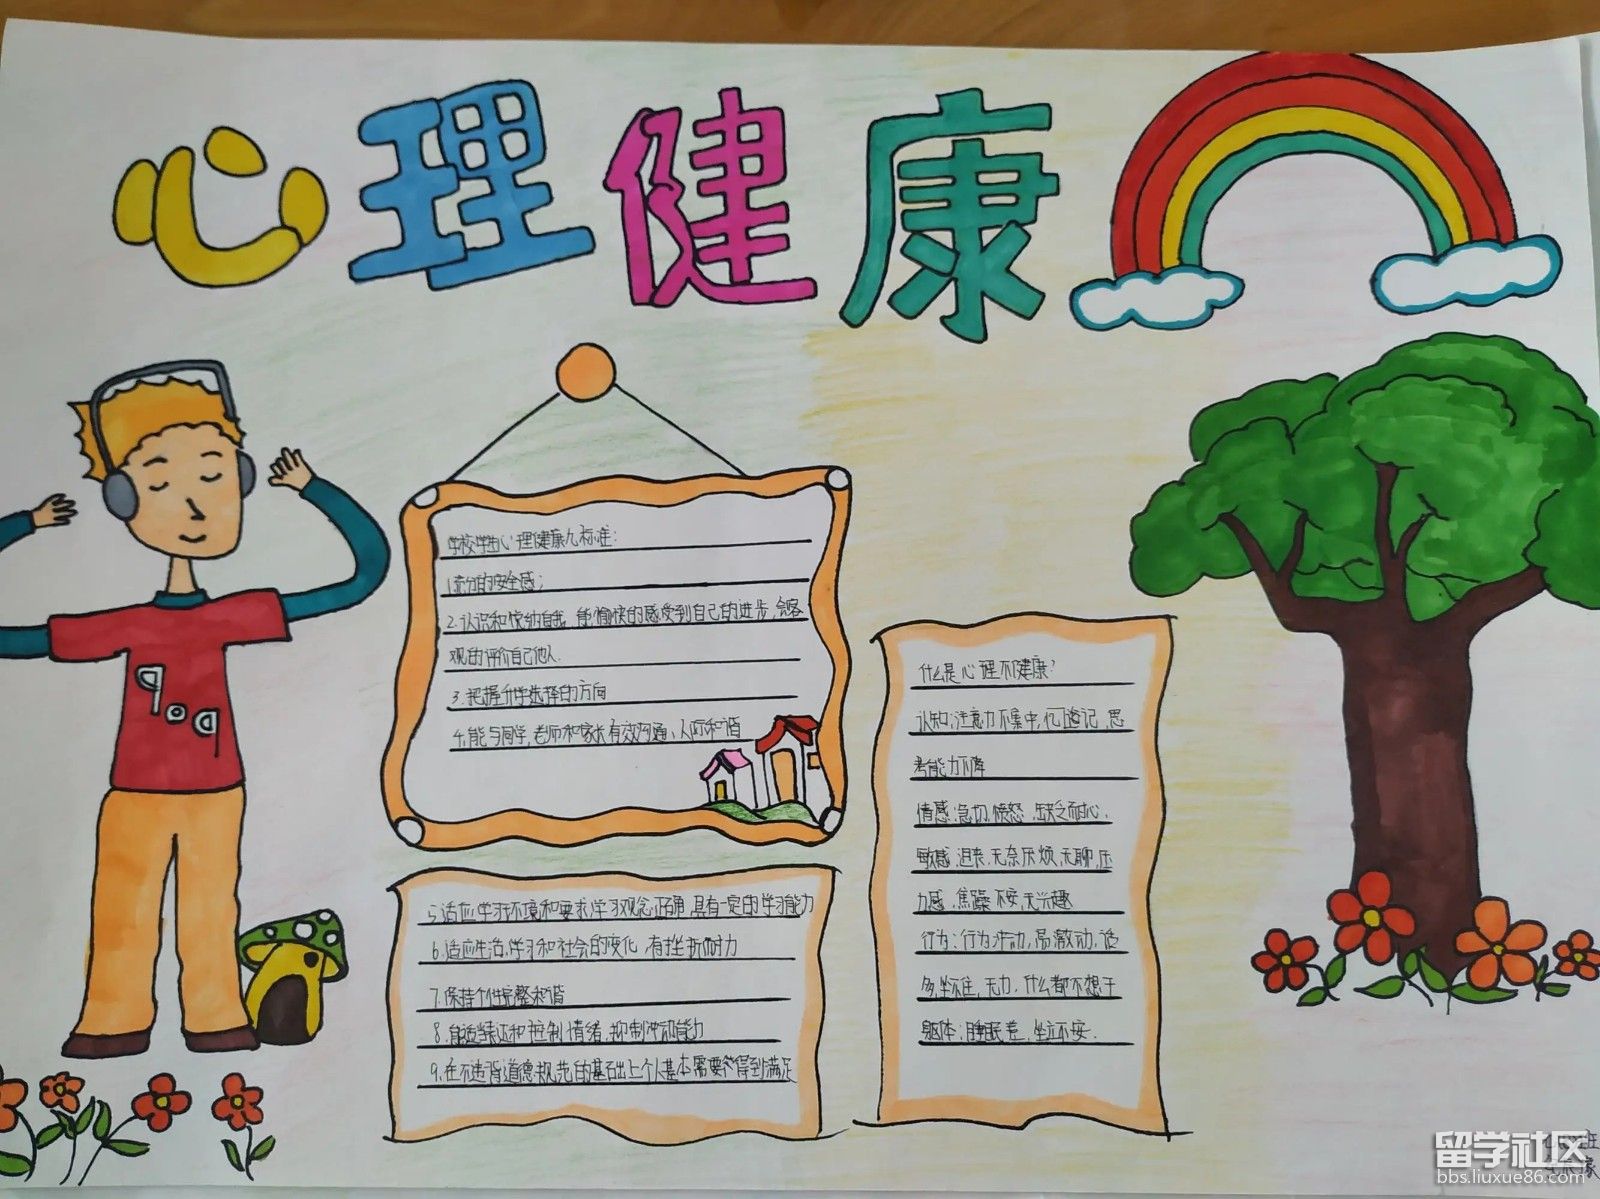 心理健康
学校学生心理健康九标准:
1.充分的安全感;
2.认识和悦纳自我,能愉快的感受到自己的进步,会客
观的评价自己他人.
3.把握升学选择的方向
4.能与同学,老师和家长有效沟通、人际和谐
5.适应学习环境和要求,学习观念正确,具有一定的学习能力
6.适应生活,学习和社会的变化,有挫折耐力
7.保持个性完整和谐
8.能适当表达和控制情绪,抑制冲动能力
9.在不违背道德规范的基础上个人基本需要得到满足
什么是心理不健康?
认知:注意力不集中,忆遗记,思
考能力下降
情感:急切,愤怒,缺乏耐心,
敏感,沮丧,无奈厌烦,无聊,压
力感,焦躁不安,无兴趣
行为:行为冲动,易激动,话
多,坐不住,无力,什么都不想干
躯体:睡眠差,坐立不安.
留学社区
bbs.liuxue86.com